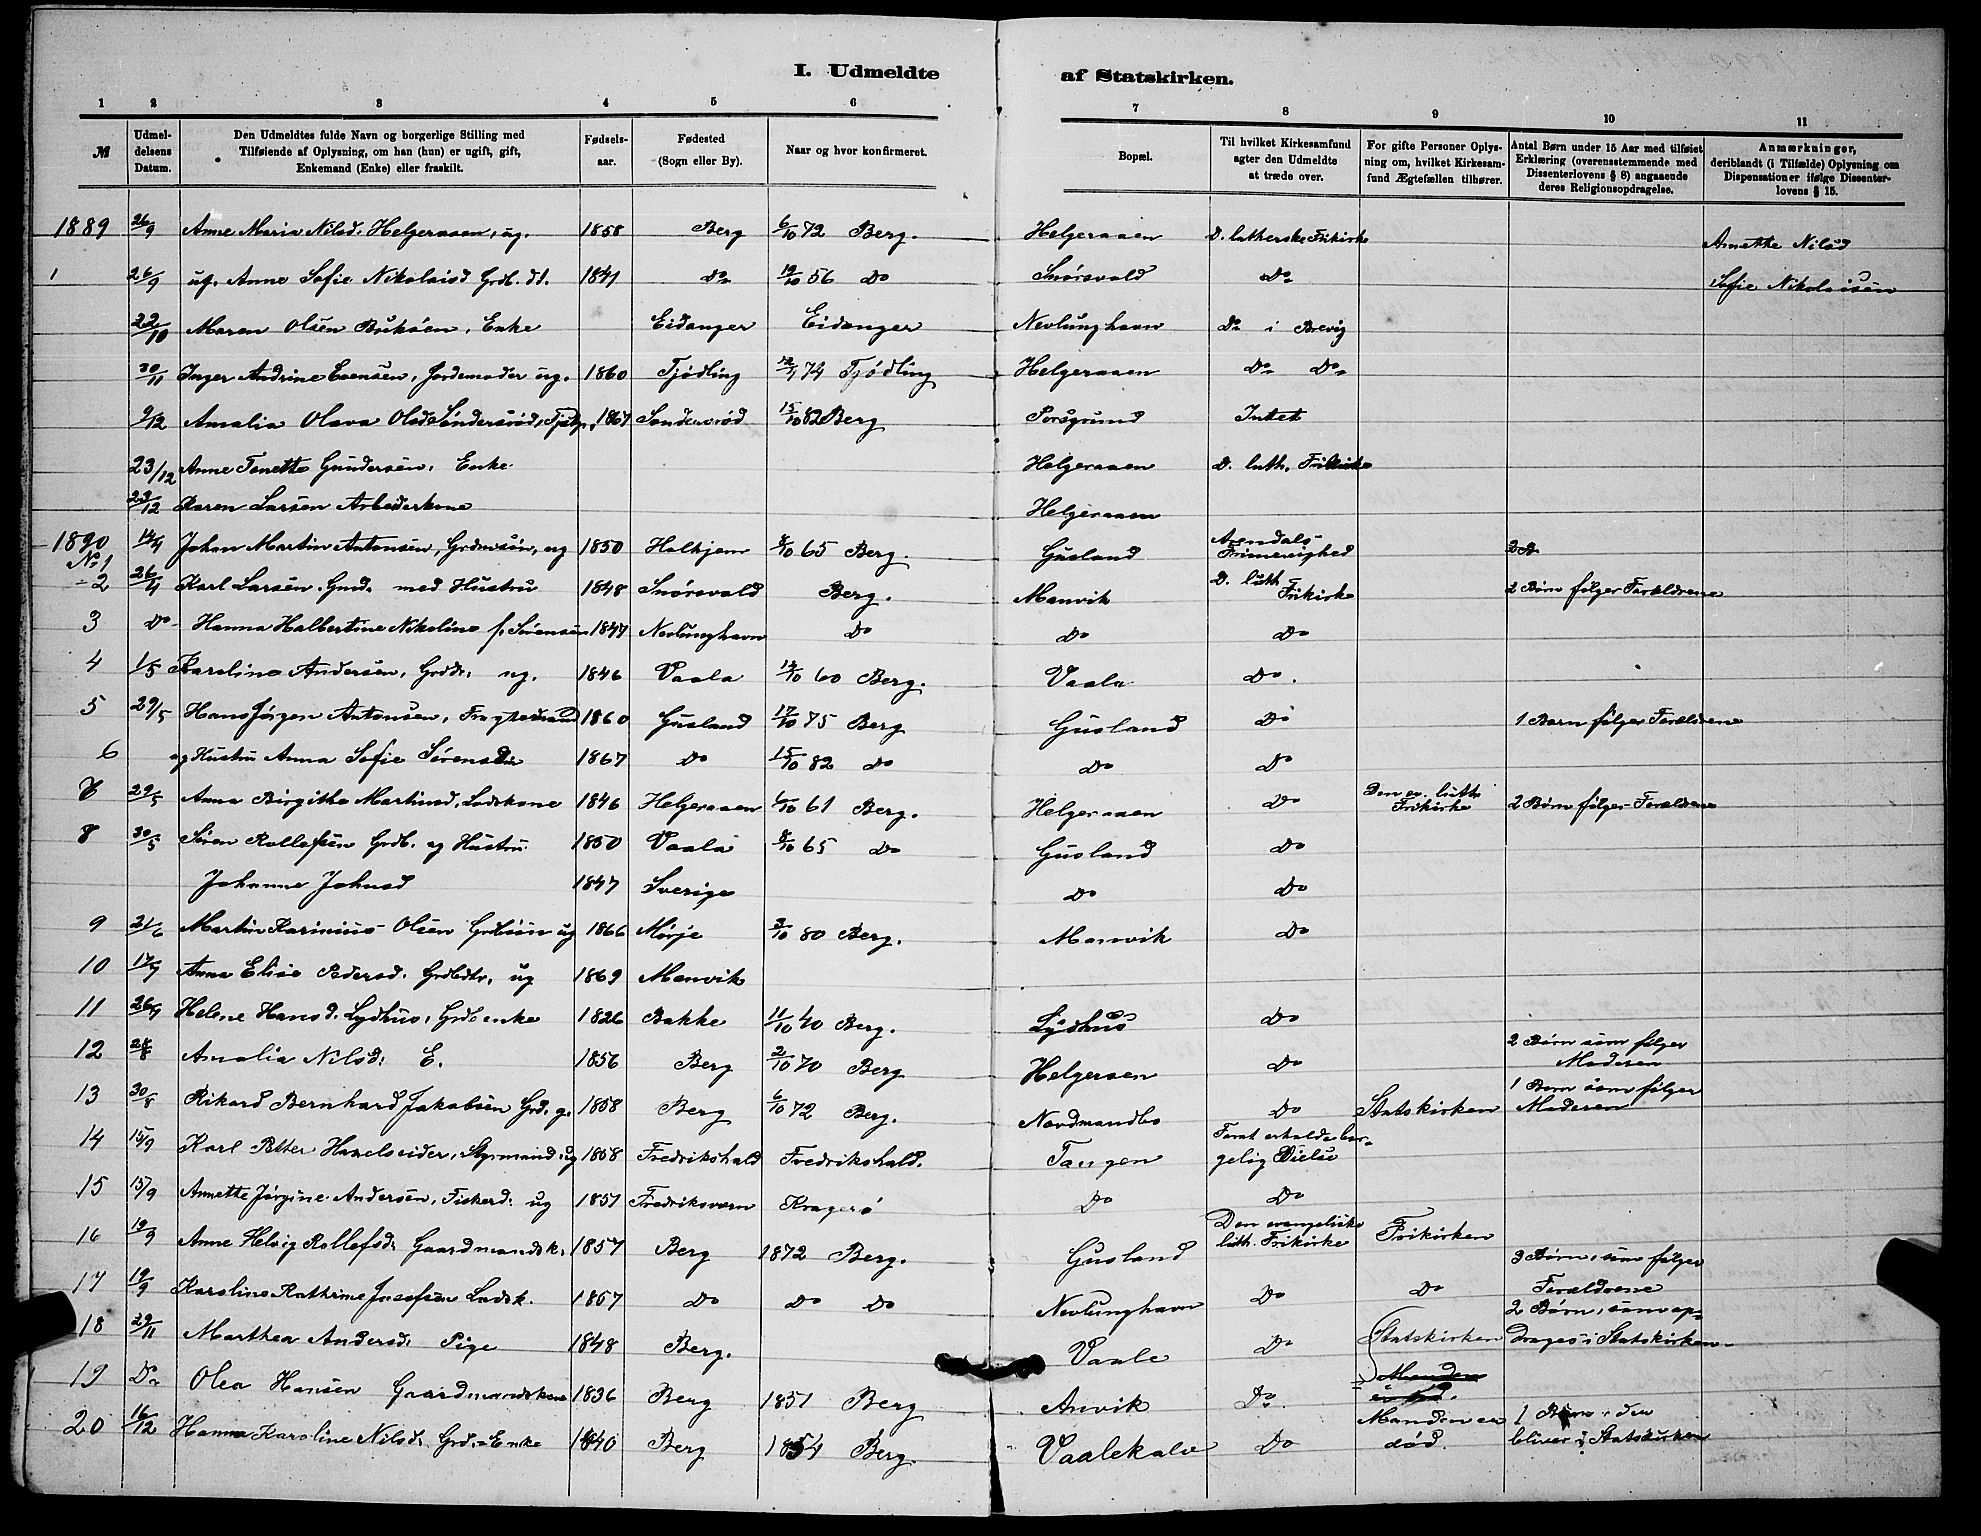 I. Udmeldte af Statskirken.
1 2 3 4 5 6 7 8 9 10 11
№ | Udmeldelsens Datum. | Den Udmeldtes fulde Navn og borgerlige Stilling med Tilføiende af Oplysning, om han (hun) er ugift, gift, Enkemand (Enke) eller fraskilt. | Fødselsaar. | Fødested (Sogn eller By). | Naar og hvor konfirmeret. | Bopæl. | Til hvilket Kirkesamfund agter den Udmeldte at træde over. | For gifte Personer Oplysning om, hvilket Kirkesamfund Ægtefællen tilhører. | Antal Børn under 15 Aar med tilføiet Erklæring (overensstemmende med Dissenterlovens § 6) angaaende deres Religionsopdragelse. | Anmærkninger, deriblandt (i Tilfælde) Oplysning om Dispensationer ifølge Dissenterlovens § 15.
1889 26/9 Anne Maria Nilsd. Helgeraaen, ug. 1858 Berg 6/10 72 Berg. Helgeraaen D. lutherske Frikirke Annette Nilsd
1 26/9 ug. Anne Sofie Nikolaisd Grdb. dt. 1841 Do 19/10 56 Do Snørsvald Do Sofie Nikolaisen
22/10 Maren Olsen Buksen, Enke Eidanger Eidanger Nevlunghavn Do i Brevig
30/11 Inger Andrine Evensen, Jordemoder ug. 1860 Tjødling 74 Tjødling Helgeraaen Do Do
9/12 Amalia Olava Olsd Søndersrød, 1867 Søndersrød 15/10 82 Berg Porsgrund Intet
23/12 Anne Tonette Gundersen, Enke Helgeraaen D. luth. Frikirke
23/12 Karen Larsen Arbeiderkone Helgeraaen
1890 No 1 14/4 Johan Martin Antonsen, Grdmsøn, ug 1850 Halhjem 8/10 65 Berg. Gusland Arendals Frimenighed
2 26/4 Karl Larsen Gmd. med Hustru 1848 Snørsvald Berg. Manvik D. luth Frikirke 2 Børn følger Forældrene
3 Do Hanna Halbertine Nikoline f. Sørensen 1847 Nevlunghavn Do Do Do
4 1/5 Karoline Andersen, Grdd. ug. 1846 Vaala 14/10 60 Berg. Vaala Do.
5 29/5 Hans Jørgen Antonsen, Fragtemand 1860 Gusland 17/10 75 Berg Gusland Do 1 Barn følger Forældrene
6 og Hustru Anna Sofie Sørensen 1867 Do 15/10 82 Do Do Do
7 29/5 Anna Birgitha Martinsd, Lodskone 1846 Helgeraaen 6/10 61 Berg. Helgeraaen Do Den ev. luth Frikirke 2 Børn følger Forældrene
8 30/5 Søren Rollefsen Grdb. og Hustru 1850 Vaala 8/10 65 Do Gusland Do
Johanne Johnsd 1847 Sverige Do Do
9 21/6 Martin Karinius Olsen Grdbsøn ug 1866 Mørje 3/10 80 Berg. Manvik Do
10 17/7 Anna Elise Pedersd. Grdbdtr, ug 1869 Manvik
11 26/7 Helene Hansd. Lydhus, Grdb enke 1826 Bakke 11/10 40 Berg. Lydhus Do
12 28/8 Amalia Nilsd. E. 1856 Berg 2/10 70 Berg Helgeraaen Do 2 Børn som følger Moderen
13 30/8 Rikard Bernhard Jakobsen Grd. g. 1858 Berg 6/10 72 Berg. Nordmandbo Do Statskirken 1 Barn som følger Moderen
14 15/9 Karl Petter Haselseider, Styrmand, ug 1858 Fredrikshald Fredrikshald. Tangen Forat erholde borgelig Vielse
15 15/9 Annette Jørgine Andersen, Fiskerd. ug 1857 Fredriksværn Kragerø Do Do
16 19/9 Anne Helvig Rollefsd. Gaardmandsk. 1857 Berg 1872 Berg. Gusland Den evangeliske luth. Frikirke Frikirken 3 Børn, som følger Forældrene
17 19/9 Karoline Kathrine Josefsen Lodsk. 1857 Do Do Do Nevlunghavn Do Do 2 Børn, som opdrages i Statskirken
18 29/11 Marthea Andersd. Pige 1848 Berg. Vaale Do Statskirken
19 Do Olea Hansen Gaardmandskone 1836 Berg 1851 Berg Anvik Do. Manden er død.
20 16/12 Hanna Karoline Nilsd. Grd.-Enke 1840 Berg 1854 Berg. Vaalekalv Do Manden er død. 1 Barn, der bliver i Statskirken